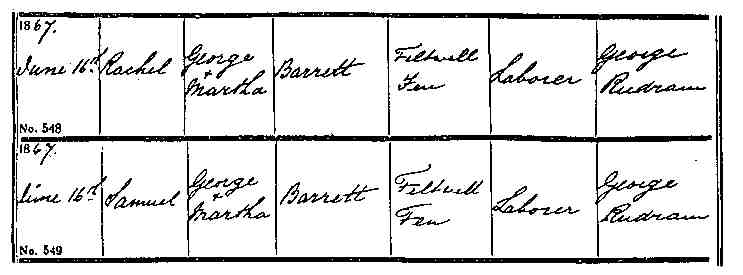 1867.
June 16th Rachel George + Martha Barrett Feltwell Fen Laborer George Rudram
No. 548
1867.
June 16th Samuel George + Martha Barrett Feltwell Fen Laborer George Rudram
No. 549